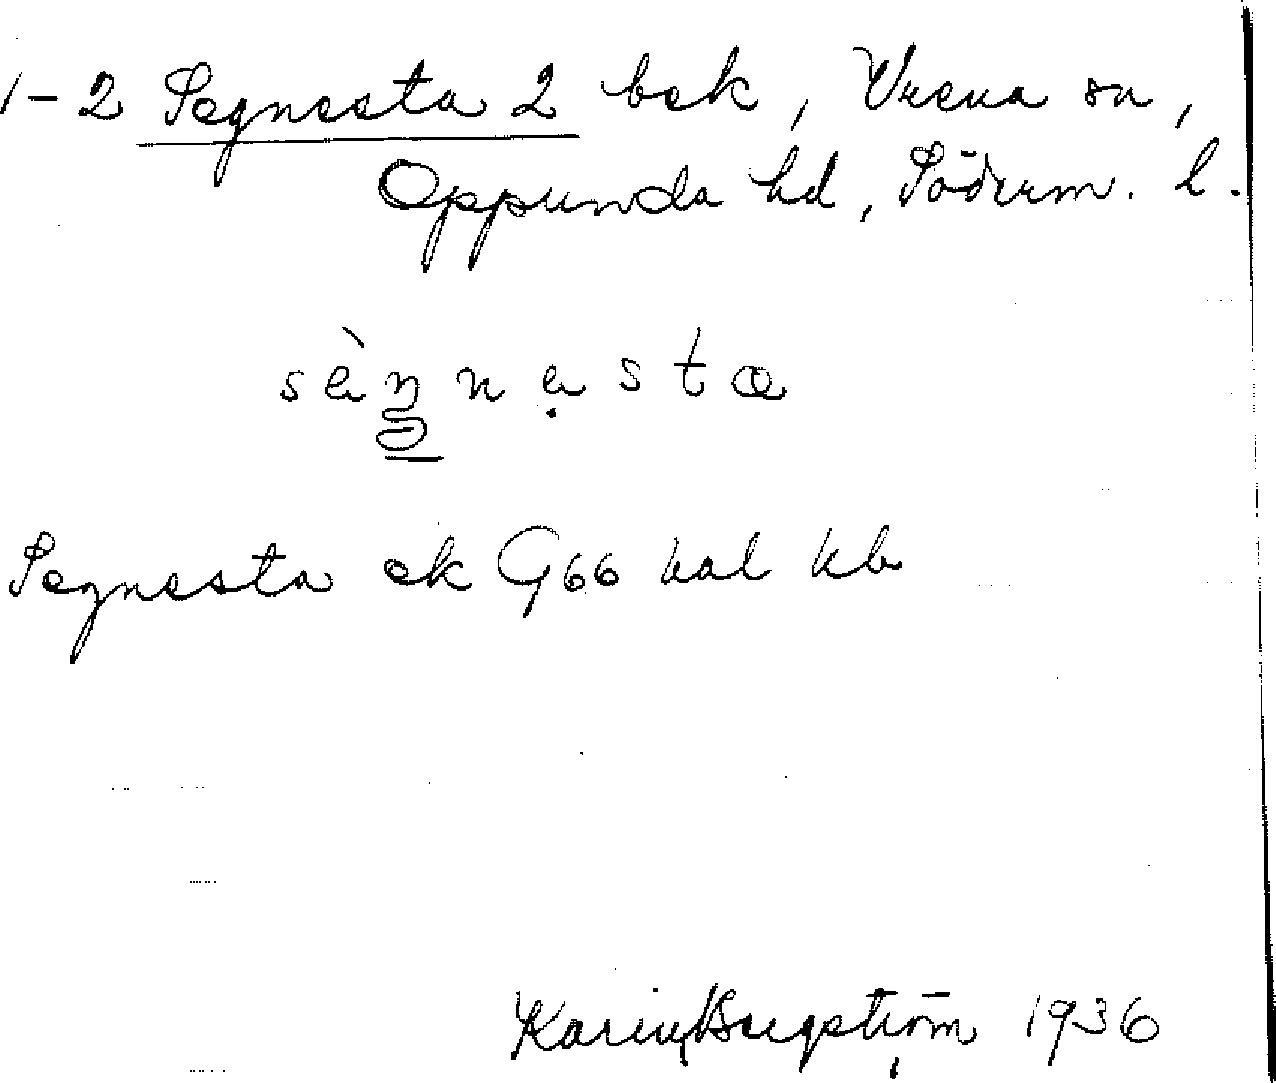 1-2 Segnesta 2 bek, Vrena sn,
Oppunda hd, Söderm. l.
sèŋnẹsta
Segnesta ek G66 hal kb
Karin Bergström 1936